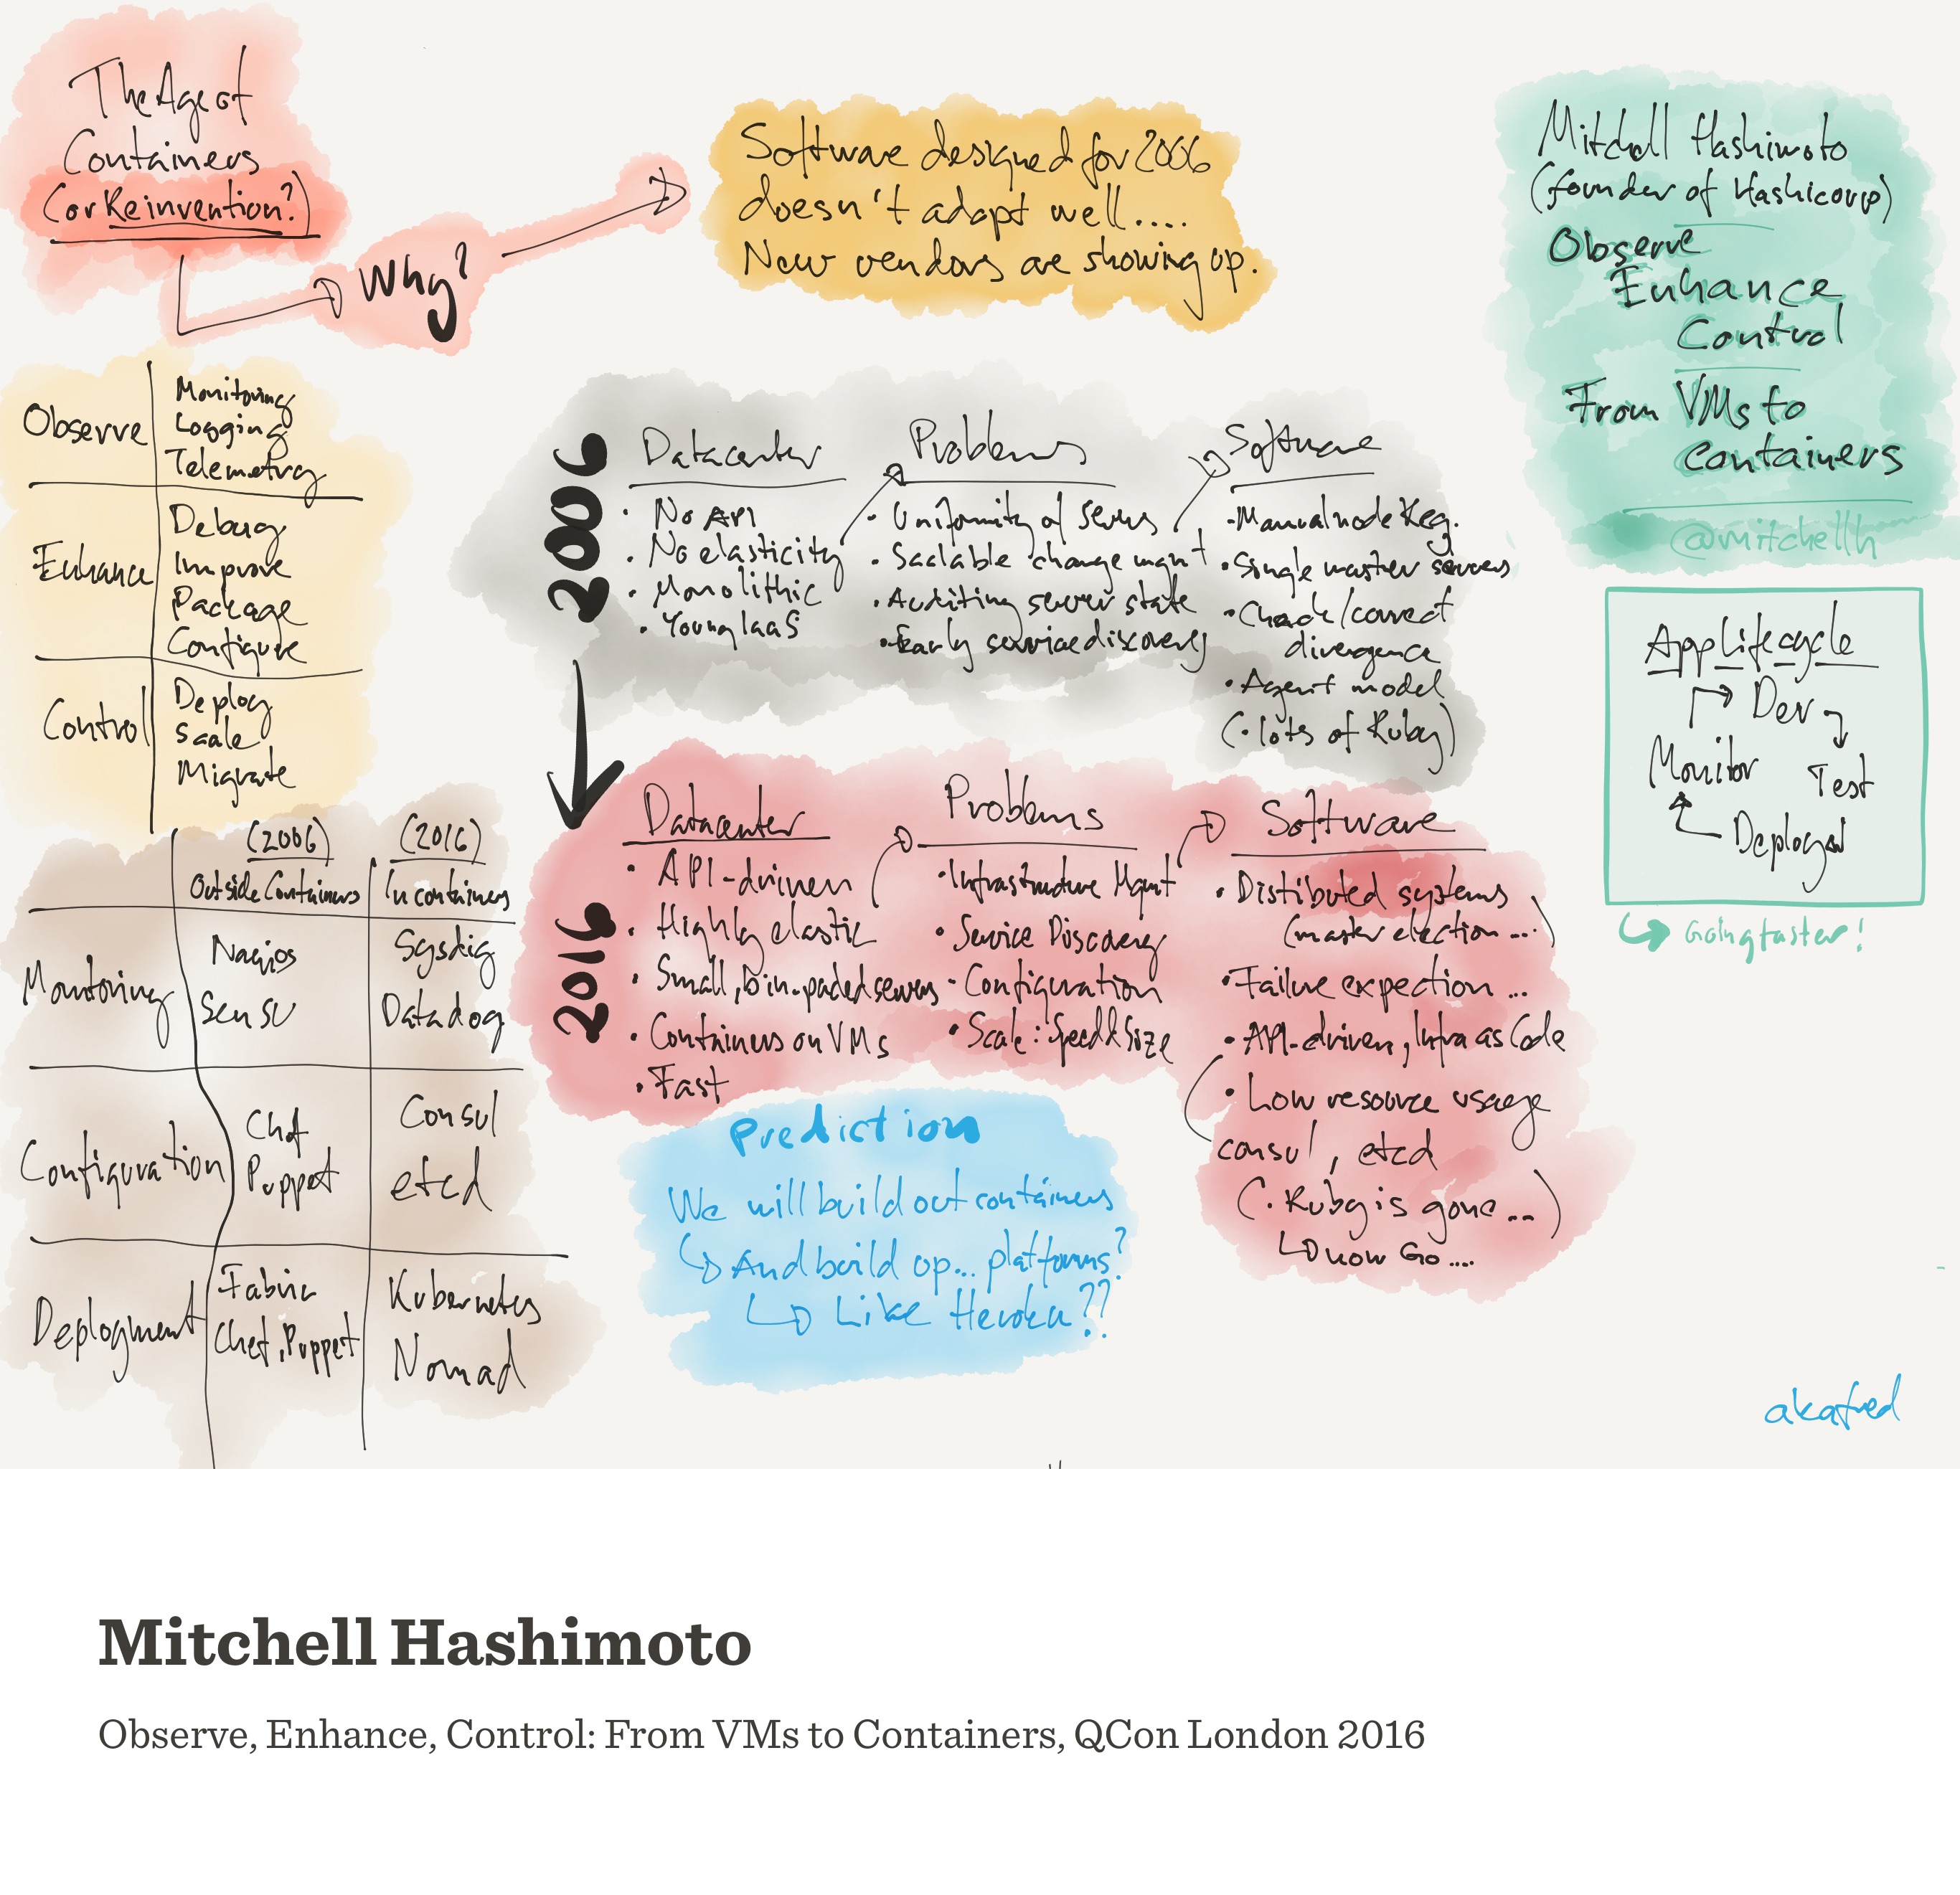 The Age of
Containers
(or Reinvention?)
Why?
Software designed for 2006
doesn't adapt well....
New vendors are showing up.
Mitchell Hashimoto
(founder of Hashicorp)
Observe
Enhance
Control
From VMs to
Containers
@mitchellh
App Lifecycle
Dev
Test
Deploy
Monitor
Going faster!
Observe
Monitoring
Logging
Telemetry
Enhance
Debug
Improve
Package
Configure
Control
Deploy
Scale
Migrate
2006
Datacenter
• No API
• No elasticity
• Monolithic
• Young IaaS
Problems
• Uniformity of servers
• Scalable change mgmt
• Auditing server state
• Early service discovery
Software
• Manual node Reg.
• Single master servers
• Check/correct
divergence
• Agent model
(• lots of Ruby)
2016
Datacenter
• API-driven
• Highly elastic
• Small, bin-paded servers
• Containers on VMs
• Fast
Problems
• Infrastructure Mgmt
• Service Discovery
• Configuration
• Scale: Speed & Size
Software
• Distibuted systems
(master election ...)
• Failure expection ...
• API-driven, Infra as Code
• Low resource usage
consul, etcd
(• Ruby is gone ...)
now Go ....
(2006)
Outside Containers
(2016)
In containers
Monitoring
Nagios
Sensu
Sysdig
Datadog
Configuration
Chef
Puppet
Consul
etcd
Deployment
Fabric
Chef, Puppet
Kubernetes
Nomad
Prediction
We will build out containers
And build op... platforms?
Like Heroku??
akafred
Mitchell Hashimoto
Observe, Enhance, Control: From VMs to Containers, QCon London 2016